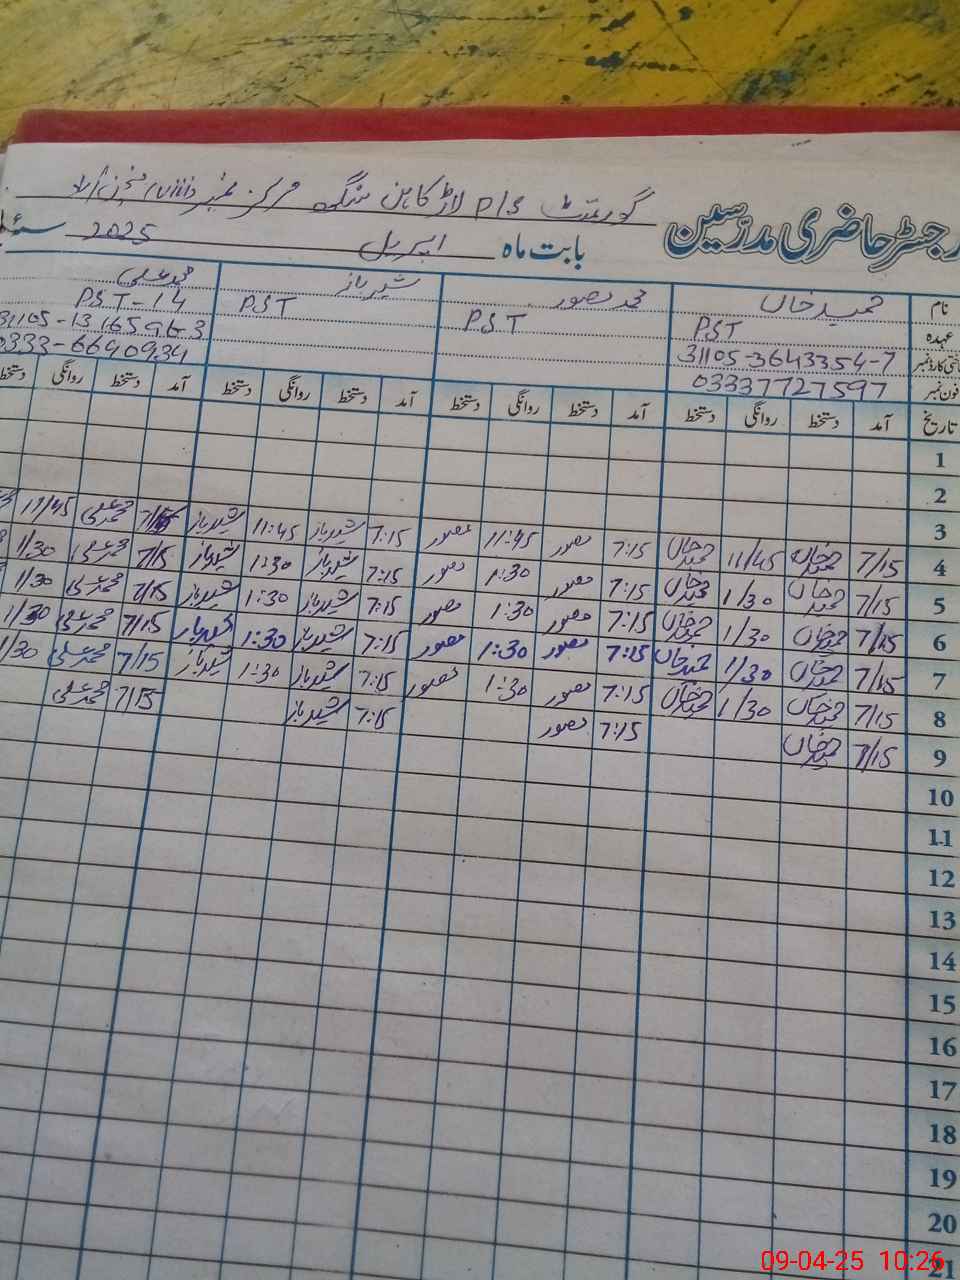 رجسٹر حاضری مدرسین گورنمنٹ P/S سنگھ مرکز نمبر
بابت ماہ اپریل سنہ 2025
نام حمید خاں محمد منصور شہباز محمد علی
عہدہ PST PST PST PST-14
31105-3643354-7
فون نمبر 03337727597 0333-6690934
تاریخ آمد دستخط روانگی دستخط آمد دستخط روانگی دستخط آمد دستخط روانگی دستخط آمد دستخط روانگی دستخط
1
2
3
4 7/15 حمید خاں 11/45 حمید خاں 7:15 منصور 11:45 منصور 7:15 شہباز 11:45 شہباز 7/15 محمد علی 11/45
5 7/15 حمید خاں 1/30 حمید خاں 7:15 منصور 1:30 منصور 7:15 شہباز 1:30 شہباز 7/15 محمد علی 1/30
6 7/15 حمید خاں 1/30 حمید خاں 7:15 منصور 1:30 منصور 7:15 شہباز 1:30 شہباز 7/15 محمد علی 1/30
7 7/15 حمید خاں 1/30 حمید خاں 7:15 منصور 1:30 منصور 7:15 شہباز 1:30 شہباز 7/15 محمد علی 1/30
8 7/15 حمید خاں 1/30 حمید خاں 7:15 منصور 1:30 منصور 7:15 شہباز 1:30 شہباز 7/15 محمد علی 1/30
9 7/15 حمید خاں 7:15 منصور 7:15 شہباز 7/15 محمد علی
10
11
12
13
14
15
16
17
18
19
20
21
09-04-25 10:26